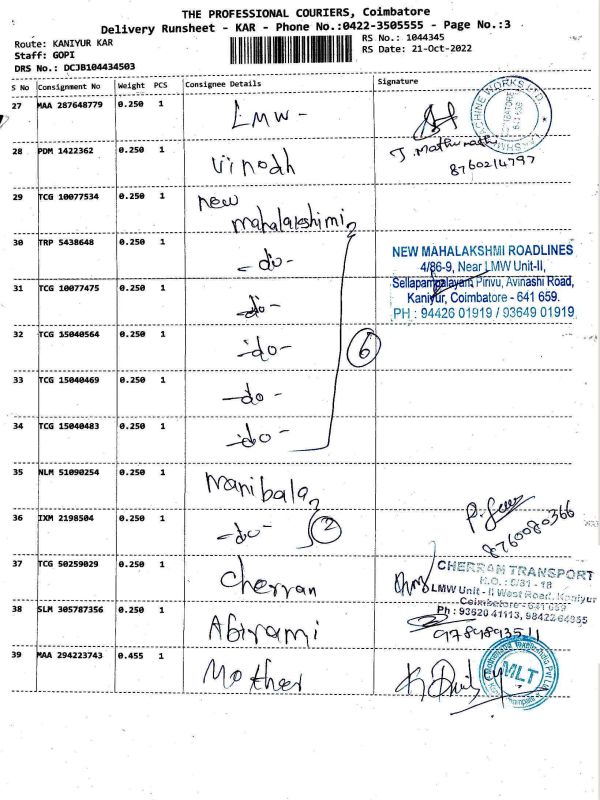 THE PROFESSIONAL COURIERS, Coimbatore
Delivery Runsheet - KAR - Phone No.:0422-3505555 - Page No.:3
Route: KANIYUR KAR
Staff: GOPI
DRS No.: DCJB104434503
RS No.: 1044345
RS Date: 21-Oct-2022
S No Consignment No Weight PCS Consignee Details Signature
27 MAA 287648779 0.250 1 LMW -
J. Mathi
8760214797
28 PDM 1422362 0.250 1 Vinodh
29 TCG 10077534 0.250 1 new mahalakshimi
30 TRP 5438648 0.250 1 -do-
NEW MAHALAKSHMI ROADLINES
4/86-9, Near LMW Unit-II,
Sellapampalayam Pirivu, Avinashi Road,
Kaniyur, Coimbatore - 641 659.
PH : 94426 01919 / 93649 01919
31 TCG 10077475 0.250 1 -do-
32 TCG 15040564 0.250 1 -do-
6
33 TCG 15040469 0.250 1 -do-
34 TCG 15040483 0.250 1 -do-
35 NLM 51090254 0.250 1 Manibala
36 IXM 2198504 0.250 1 -do- 2
8760080366
37 TCG 50259029 0.250 1 Cherran
CHERRAN TRANSPORT
N.O. : 5/81 - 18
LMW Unit - II West Road, Kaniyur
Coimbatore - 641 659
Ph : 93620 41113, 98422 64355
38 SLM 305787356 0.250 1 Abirami
9789893511
39 MAA 294223743 0.455 1 Mother
MLT